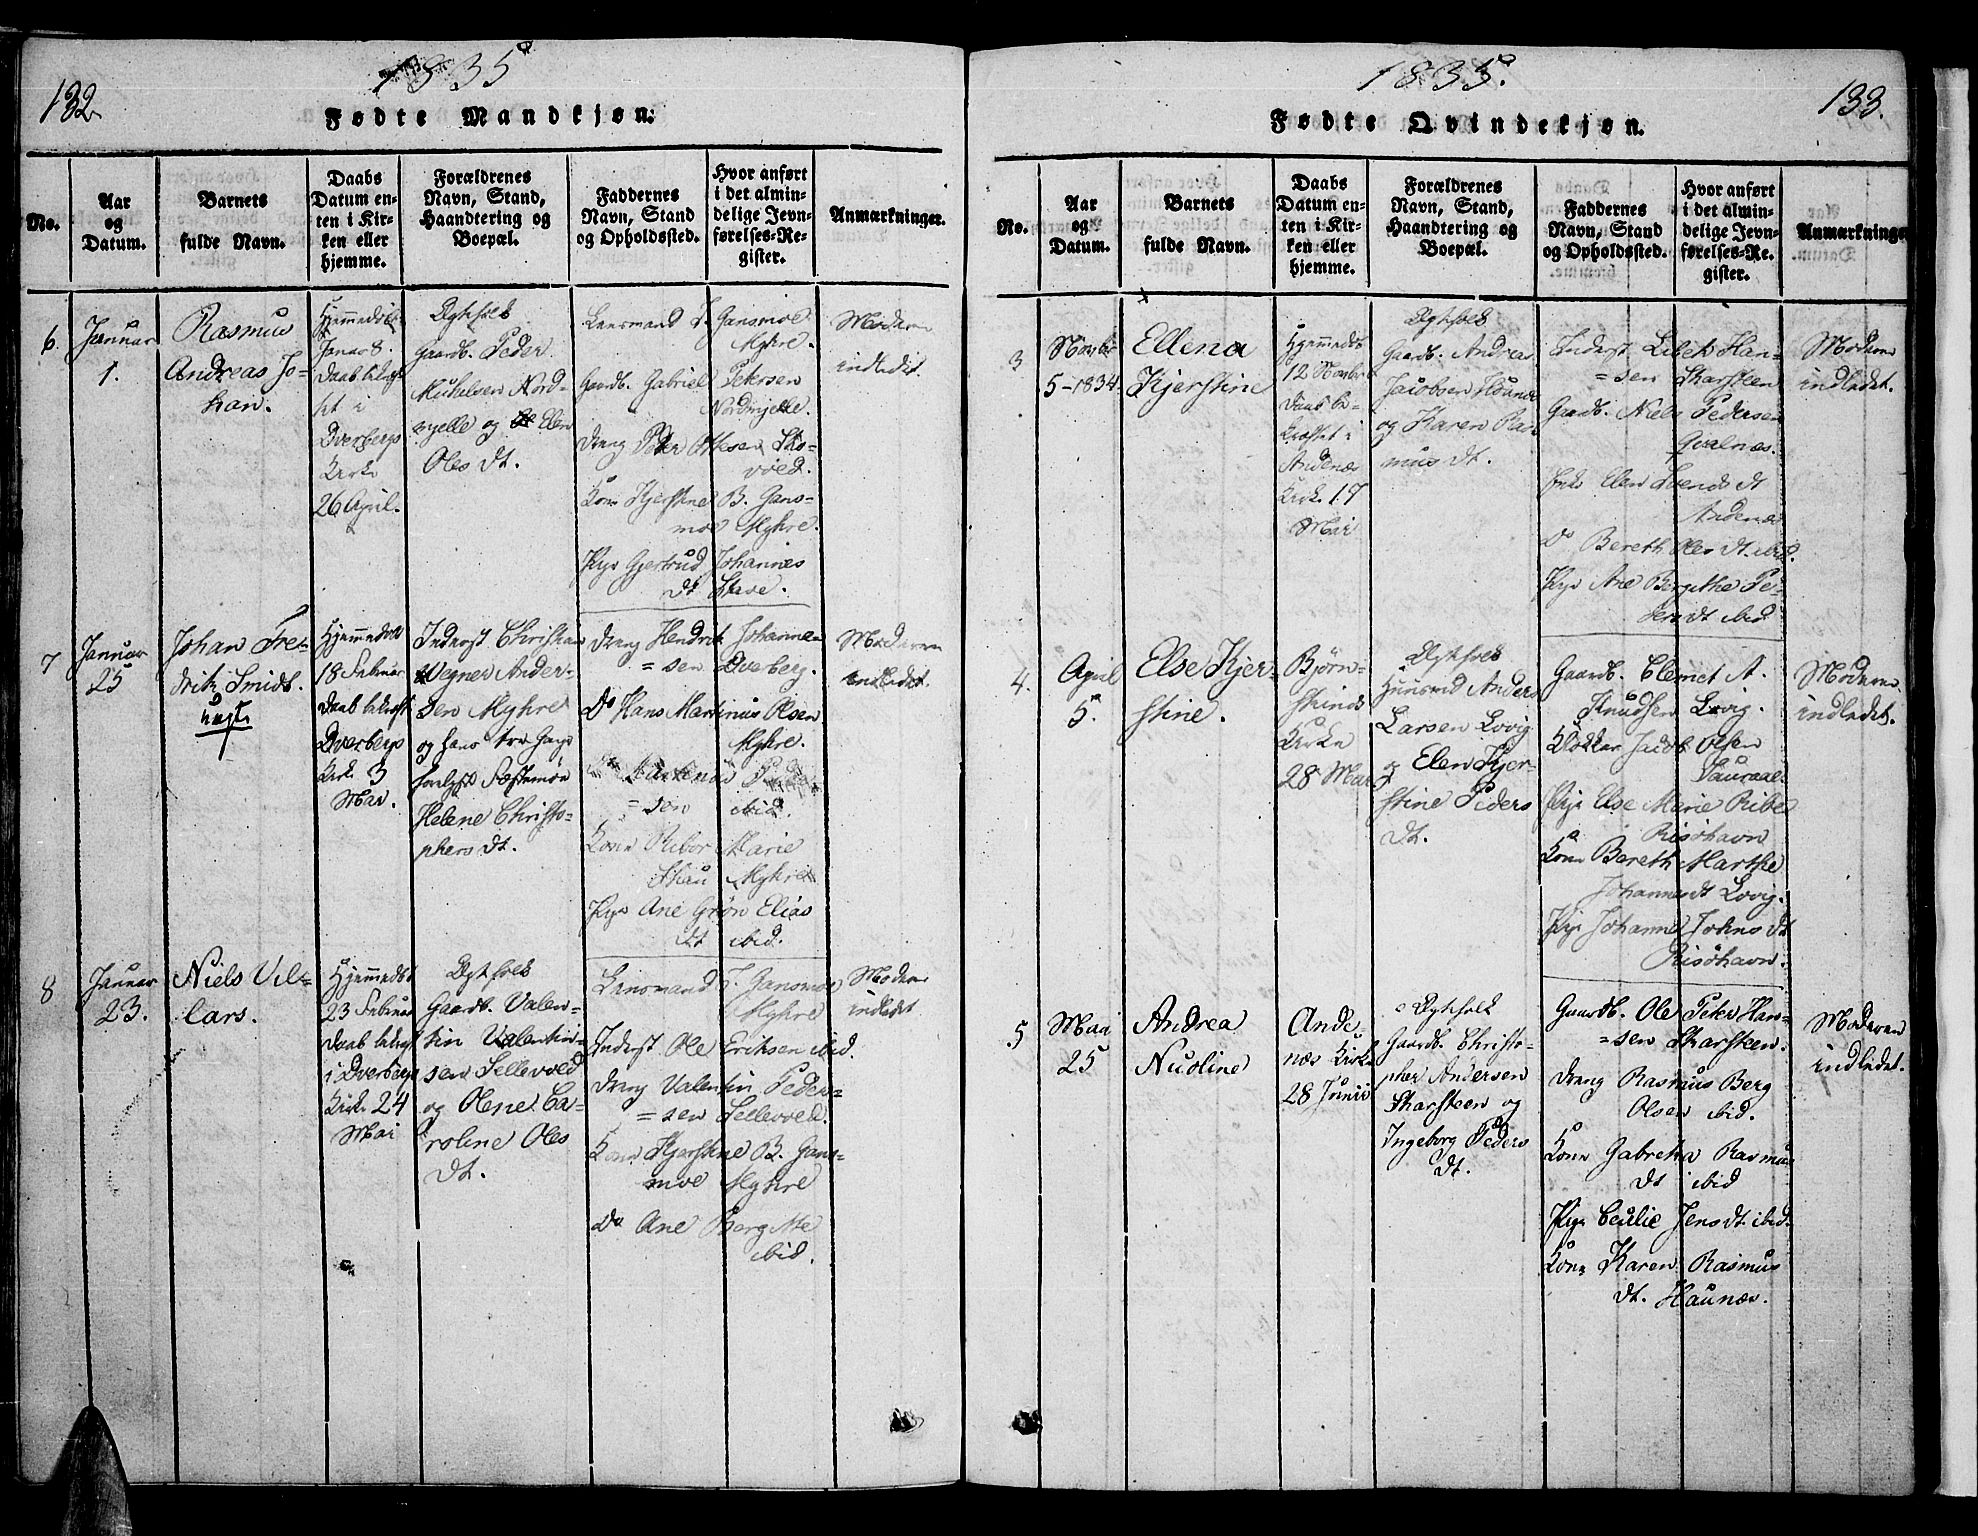 132.
1835
Fødte Mandkjøn.
No.
Aar
og
Datum.
Barnets
fulde Navn.
Daabs
Datum en-
ten i Kir-
ken eller
hjemme.
Forældrenes
Navn, Stand,
Haandtering og
Boepæl.
Faddernes
Navn, Stand
og Opholdssted.
Hvor anført
i det almin-
delige Jevn-
førelses-Re-
gister.
Anmærkninger.
6.
Januar
1.
Rasmus
Andreas Jo-
han.
Hjemmedøbt
Januar 8.
Daab
i
Dverbergs
Kirke
26 April.
Ægtfolk
Gaardb. Peder
Mikelsen Nord-
myelle og Elen
Oles Dt.
Lensmand J. Gansmoe
Myhre.
Gaardb. Gabriel Petersen
Nordmyelle.
Dreng Peter Ottesen Sko-
vold.
Kone Kjerstine B. Gans-
moe Myhre.
Pige Gjertrud Johannes
Dt Stave.
Moderen
indledet.
7
Januar
25
Johan Fre-
drik Smidt.
uægte
Hjemmedøbt
18 Februar
Daab
Dverbergs
Kirke 3
Mai.
Inderst Christian
Wegner Ander-
sen Myhre
og hans
Fæstemøe
Helene Christo-
phers Dt.
Dreng Hendrik Johanne-
sen Dverberg.
Do Hans Martinus Olsen
Myhre.
sen ibid.
Kone Marie
Myhre
Pige Ane Grøn Elias
Dt ibid.
Moderen
indledet.
8
Januar
23.
Niels Vil-
lars.
Hjemmedøbt
23 Februar
Daab
i Dverbergs
Kirke 24
Mai
Ægtfolk
Gaardb. Valen-
tin Valentin-
sen Sellevold
og Olene Ca-
roline Oles
Dt.
Lensmand J. Gansmoe
Myhre
Inderst Ole Eriksen ibid.
Dreng Valentin Peder-
sen Sellevold.
Kone Kjerstine B. Gans-
moe Myhre
Do Ane Bergitte
ibid.
Moderen
indledet
1835.
133.
Fødte Qvindekjøn.
No.
Aar
og
Datum.
Barnets
fulde Navn.
Daabs
Datum en-
ten i Kir-
ken eller
hjemme.
Forældrenes
Navn, Stand,
Haandtering og
Boepæl.
Faddernes
Navn, Stand
og Opholdssted.
Hvor anført
i det almin-
delige Jevn-
førelses-Re-
gister.
Anmærkninge
3
Novbr
5-1834
Ellena
Kjerstine
Hjemmedøbt
12 Novbr
Daab be-
kræftet i
Andenæs
Kirke 17
Mai
Ægtfolk
Gaardb. Andreas
Jacobsen
og Karen Ras-
mus Dt.
Inderst Han-
sen Skarsteen
Gaardb. Niels Pedersen
Qvalnæs.
Enke Elen Svends Dt
Andenæs
Do Bereth Oles Dt ibid.
Pige Ane Bergithe Pe-
ders Dt ibid
Moderen
indledet.
4.
April
5.
Else Kjer-
stine.
Bjørn-
skinds
Kirke
28 Mai
Ægtfolk
Huusmd Anders
Larsen Lovig
og Elen Kjer-
stine Peders
Dt.
Gaardb. Clemet A.
Knudsen Lovig.
Klokker Jacob Olsen
Pige Else Marie Ribe
Risøhavn
Kone Bereth Marthe
Johannes Dt Lovig.
Pige Johanne Johns Dt
Risøhavn.
Moderen
indledet.
5
Maai
25
Andrea
Nicoline
Ande-
næs Kirke
28 Junii
Ægtfolk
Gaardb. Christo-
pher Andersen
Skarsteen og
Ingeborg Peders
Dt.
Gaardb. Ole Peter Han-
sen Skarsteen.
Dreng Rasmus Berg
Olsen ibid.
Kone Gabretha Rasmus
Dt ibid
Pige Cecilie Jens Dt. ibid.
Kone Karen Rasmus
Dt. Haunæs.
Moderen
indledet.